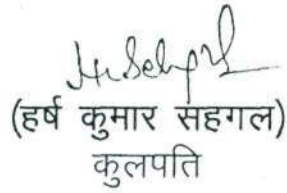 (हर्ष कुमार सहगल)
कुलपति